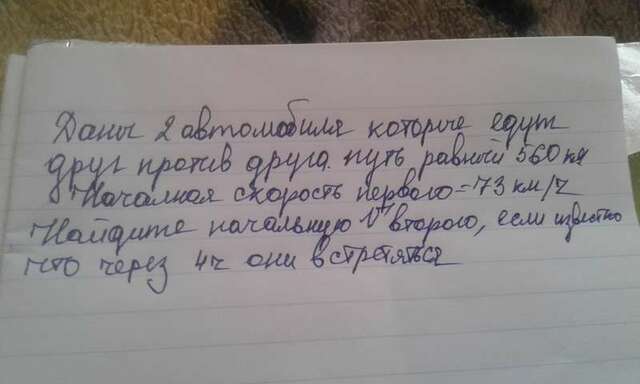 Даны 2 автомобиля которые едут
друг против друга. путь равный 560 км
Начальная скорость первого = 73 км/ч
Найдите начальную V второго, если известно
что через 4ч они встретяться